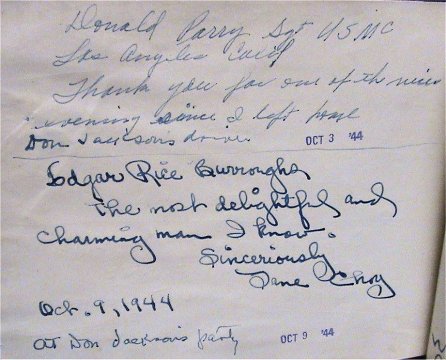 Donald Parry Sgt USMC
Los Angeles Calif
Thank you for one of the nicest
evening since I left home
Don Jackson's driver OCT 3 '44
Edgar Rice Burroughs
The most delightful and
charming man I know.
Sinceriously
Jane Choy
Oct. 9, 1944
at Don Jackson's party OCT 9 '44